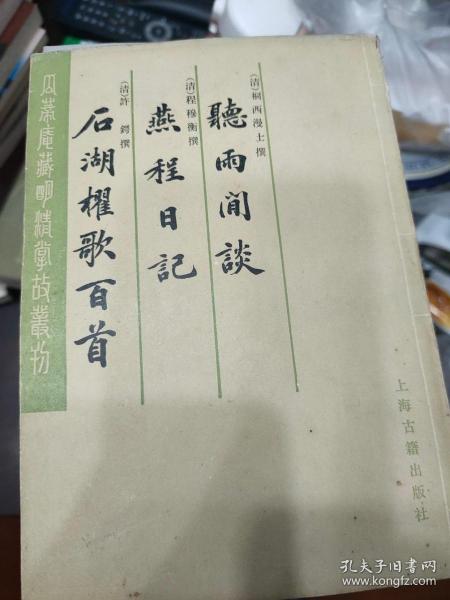 （清）桐西漫士撰
聽雨閒談
（清）程穆衡撰
燕程日記
（清）許鍔撰
石湖櫂歌百首
瓜蒂庵藏明清掌故叢刊
上海古籍出版社
孔夫子旧书网
www.kongfz.com